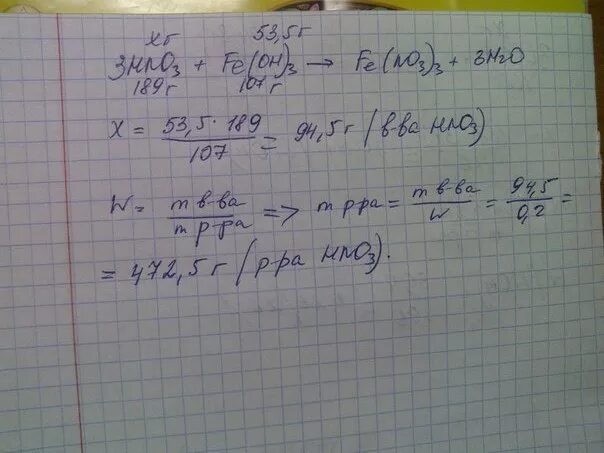 xг 53,5г
3HNO₃ + Fe(OH)₃ → Fe(NO₃)₃ + 3H₂O
189г 107г
X = 53,5 · 189 / 107 = 94,5 г (в-ва HNO₃)
W = m в-ва / m р-ра => m р-ра = m в-ва / W = 94,5 / 0,2 =
= 472,5 г (р-ра HNO₃).